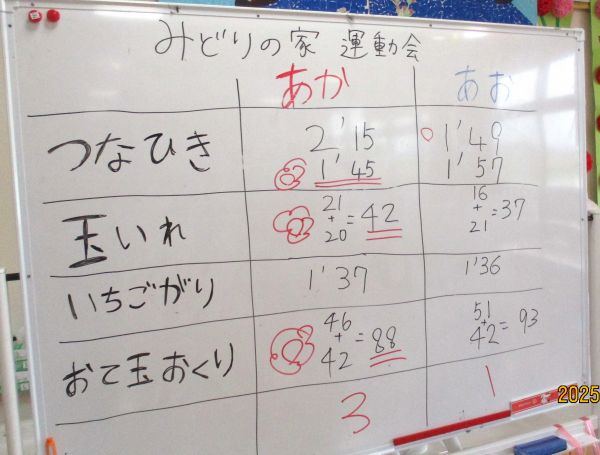 みどりの家 運動会
あか あお
つなひき 2'15 1'49
1'45 1'57
玉いれ 21+20=42 16+21=37
いちごがり 1'37 1'36
おて玉おくり 46+42=88 51+42=93
3 1
2025